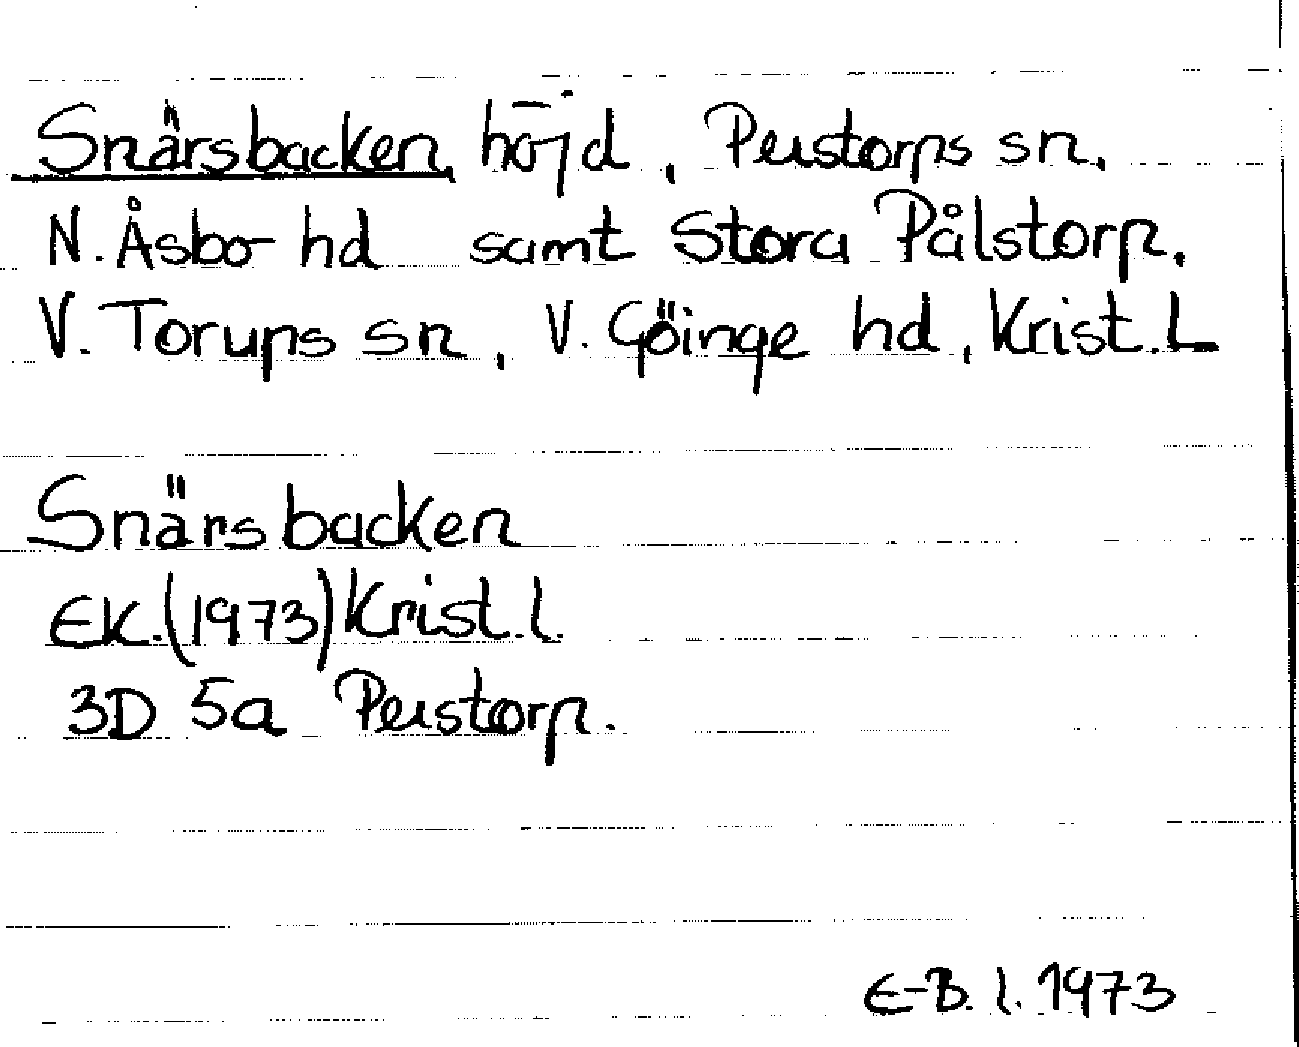 Snärsbacken, höjd, Perstorps sn,
N. Åsbo hd samt Stora Pålstorp,
V. Torups sn, V. Göinge hd, Krist. L
Snärsbacken
EK. (1973) Krist. l.
3D 5a Perstorp.
E-B. l. 1973